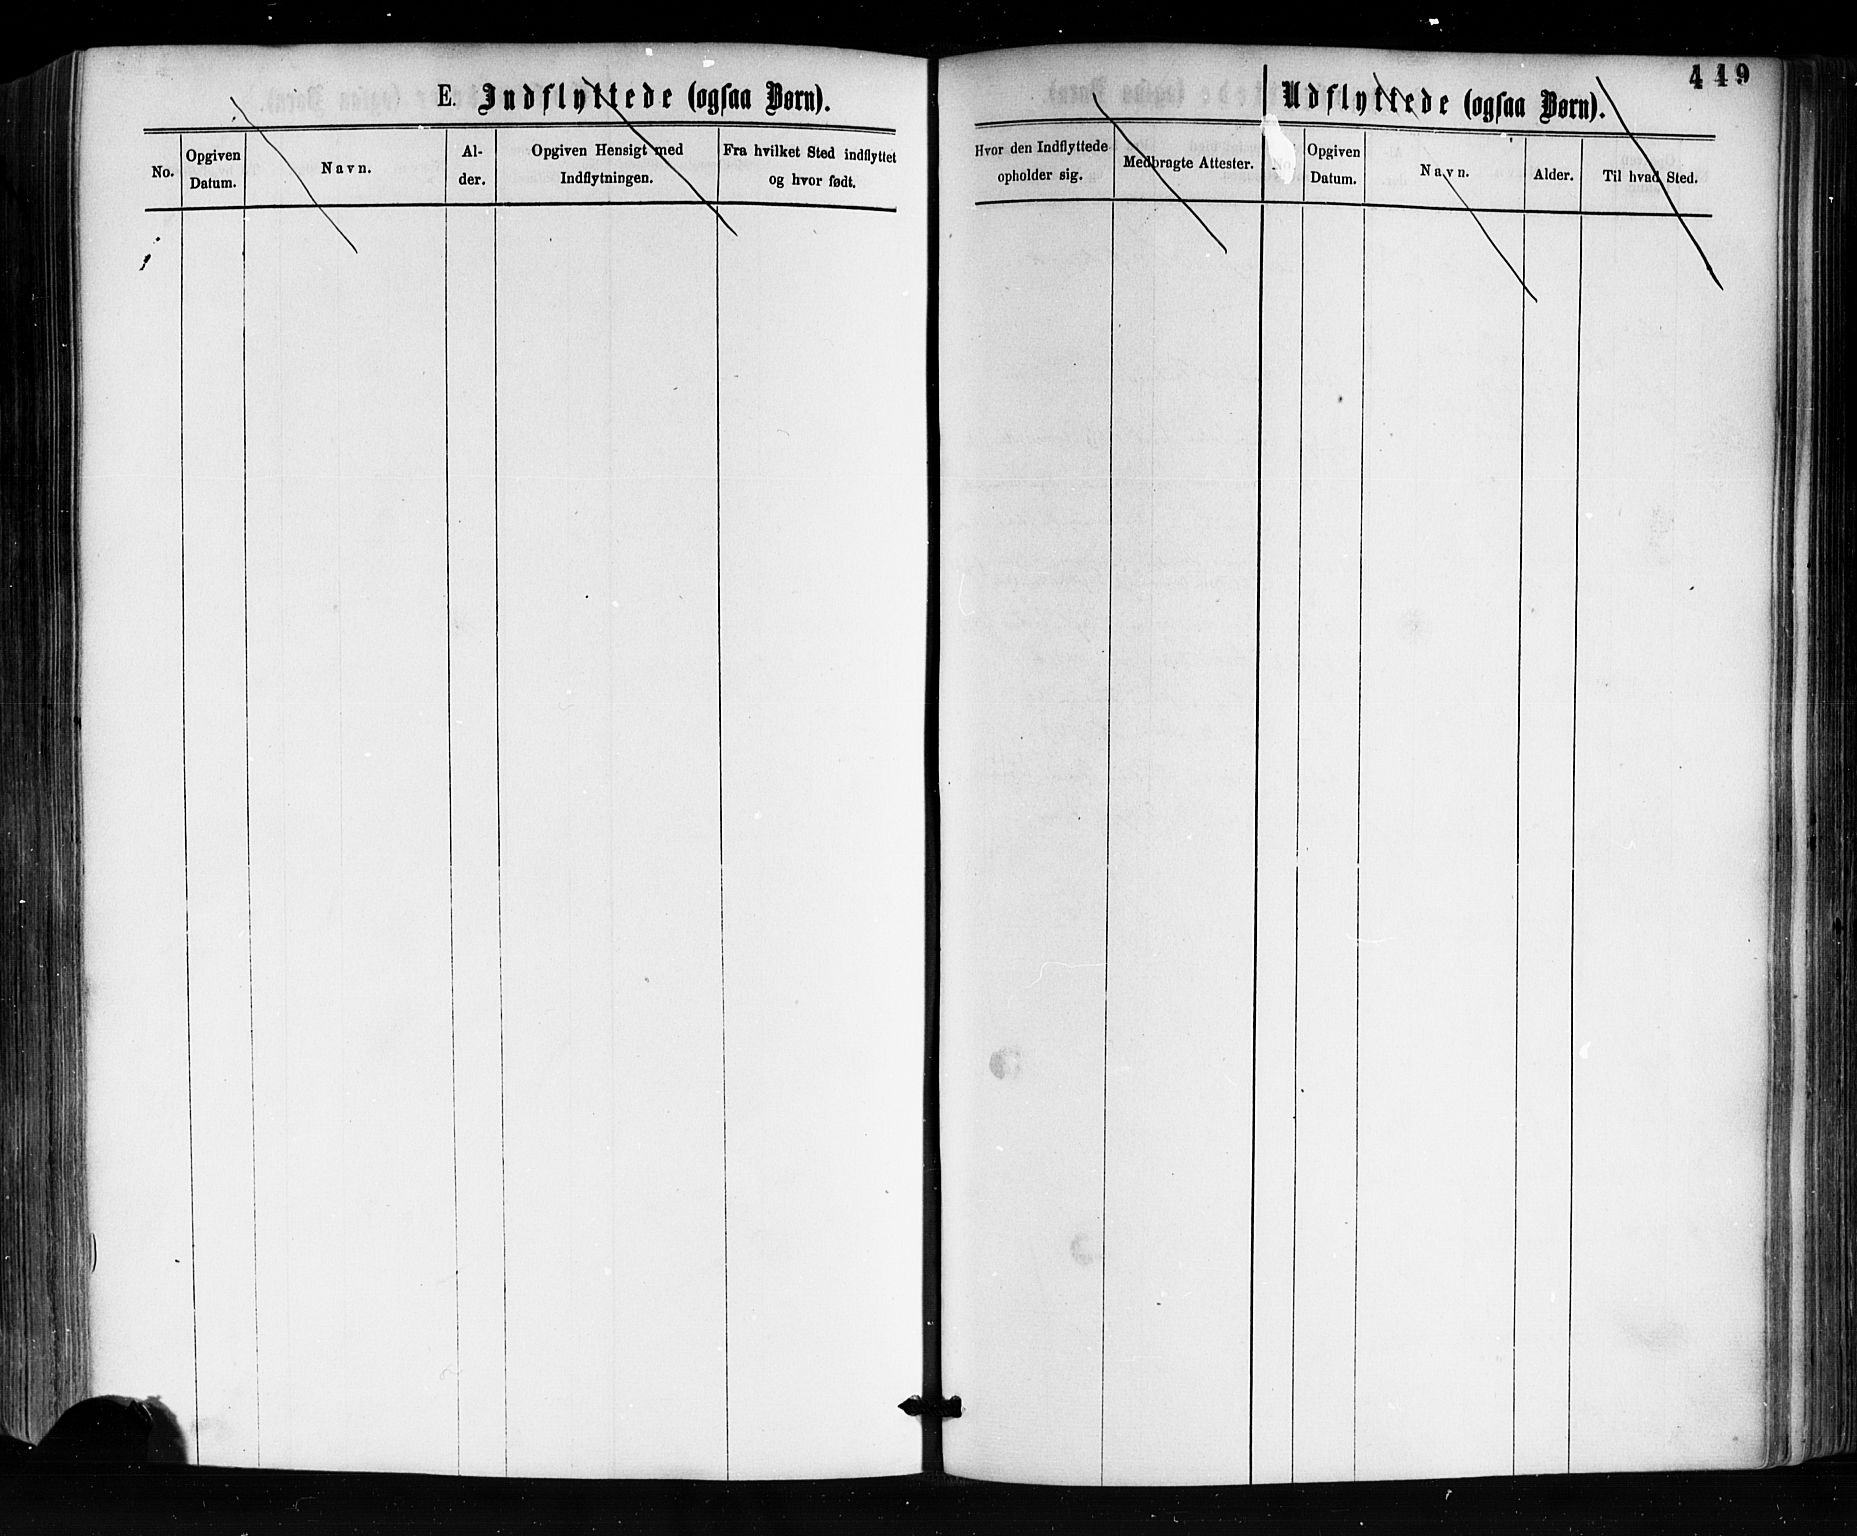 E. Indflyttede (ogsaa Børn).
No.
Opgiven
Datum.
Navn.
Al-
der.
Opgiven Hensigt med
Indflytningen.
Fra hvilket Sted indflyttet
og hvor født.
449
Udflyttede (ogsaa Børn).
Hvor den Indflyttede
opholder sig.
Medbragte Attester.
No.
Opgiven
Datum.
Navn.
Alder.
Til hvad Sted.